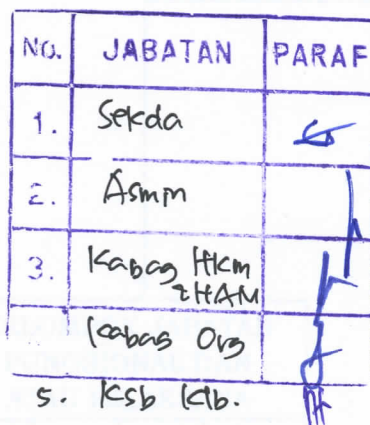 No. JABATAN PARAF
1. Sekda
2. Asmin
3. Kabag Hkm
& HAM
Kabag Org
5. Ksb Klb.